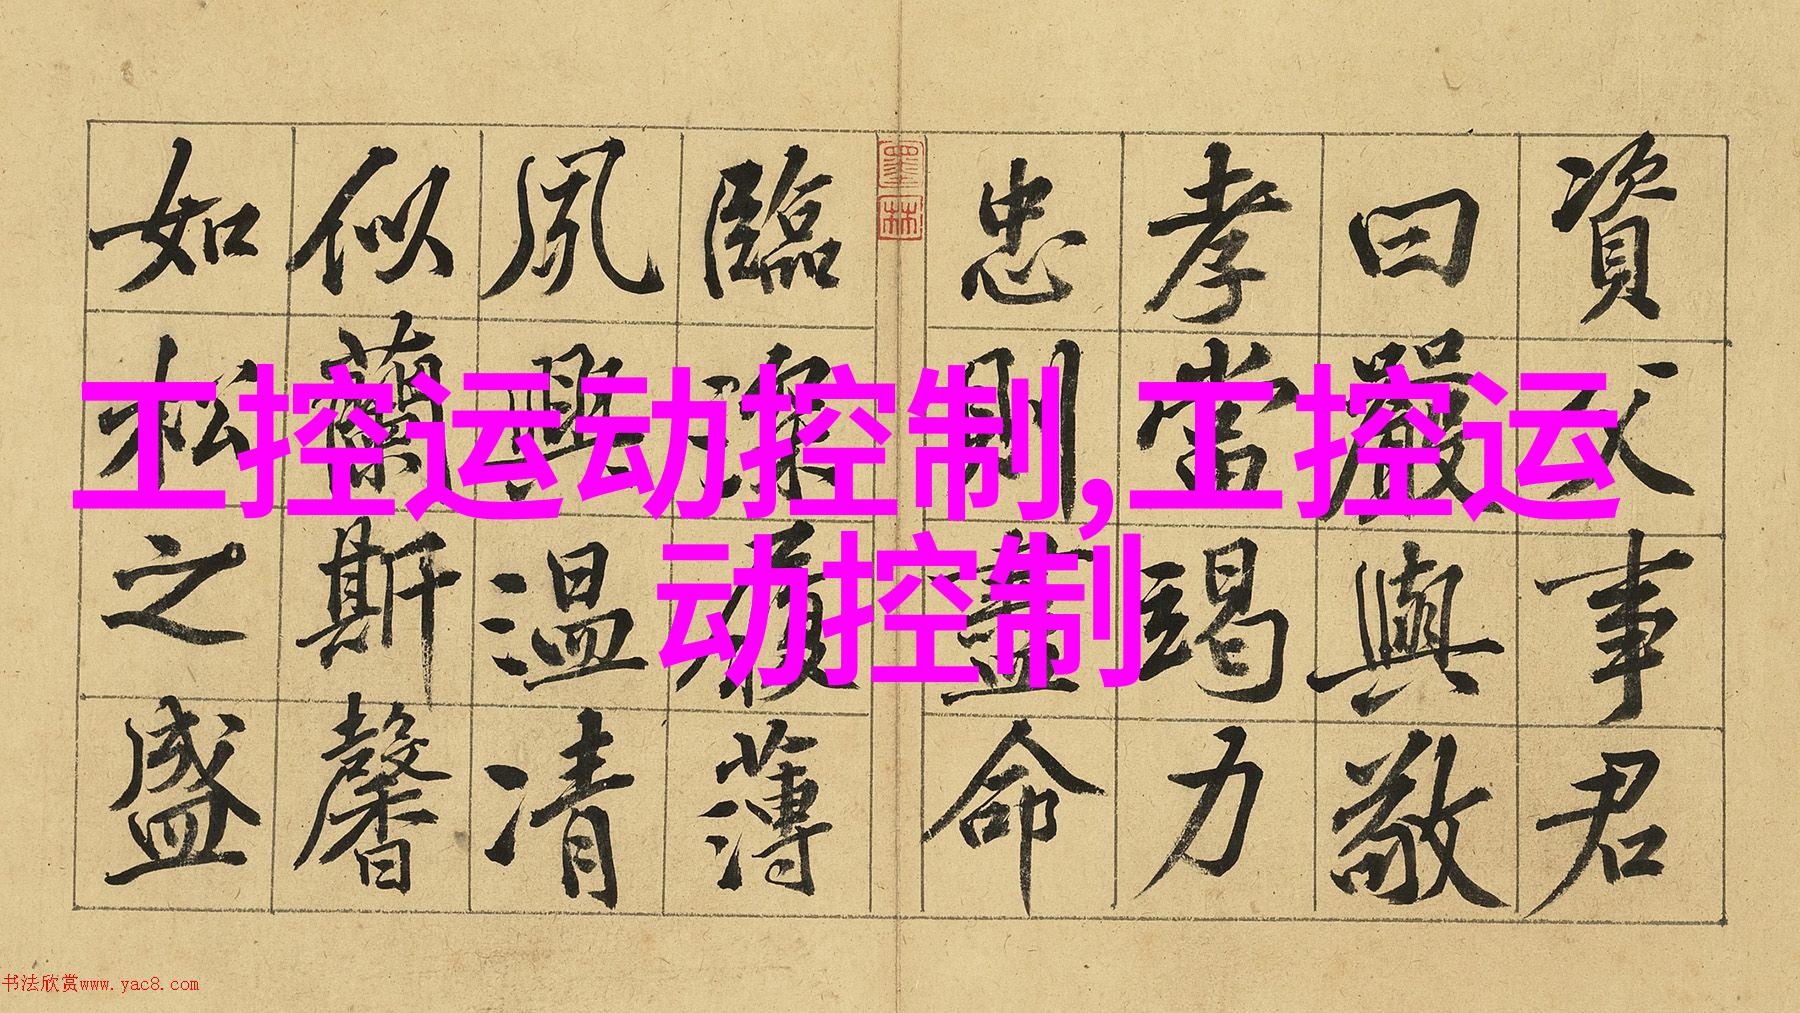 工控运动控制,工控运
动控制
資父事君
曰嚴與敬
孝當竭力
忠則盡命
墨林
臨深履薄
夙興温凊
似蘭斯馨
如松之盛
书法欣赏www.yac8.com